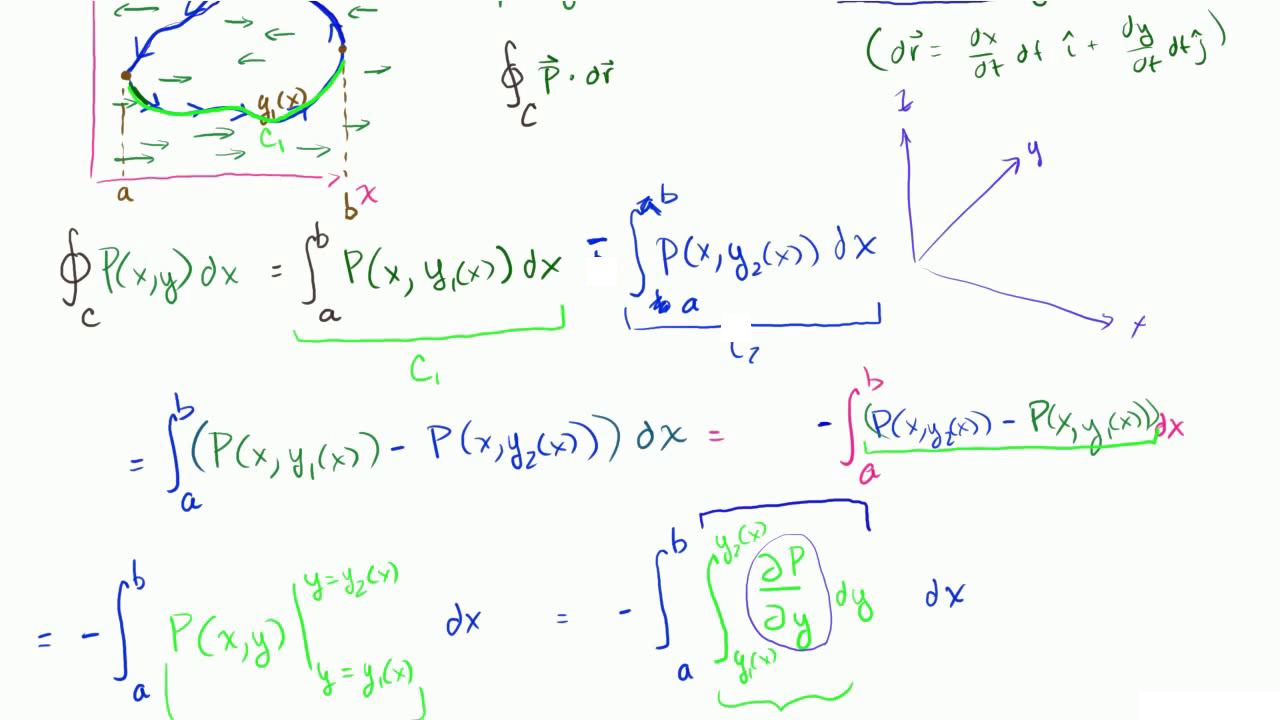 y₁(x)
C₁
a
b
x
∮_C P⃗ · dr⃗
(dr⃗ = dx/dt dt î + dy/dt dt ĵ)
z
y
x
∮_C P(x,y) dx = ∫_a^b P(x, y₁(x)) dx - ∫_a^b P(x, y₂(x)) dx
C₁
C₂
= ∫_a^b (P(x, y₁(x)) - P(x, y₂(x))) dx = - ∫_a^b (P(x, y₂(x)) - P(x, y₁(x))) dx
= - ∫_a^b P(x,y) |_{y = y₁(x)}^{y = y₂(x)} dx = - ∫_a^b ∫_{y₁(x)}^{y₂(x)} ∂P/∂y dy dx